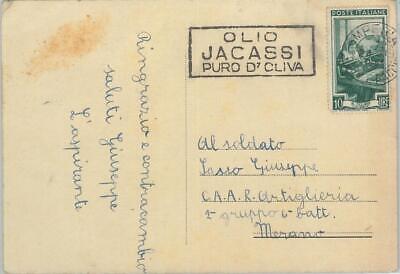 Ringrazio e contracambio
saluti Giuseppe
L'aspirante
OLIO
JACASSI
PURO D'OLIVA
POSTE ITALIANE
10
LIRE
Al soldato
Sasso Giuseppe
C.A.A.R. Artiglieria
1° gruppo 6° batt.
Merano